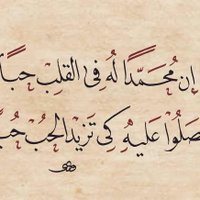 إن مُحَمَّدًا لَهُ فِي القَلِب حُبًّا
صَلُوا عَلَيْهِ كَي تَزِيدَ الحُبُ حُبًّا